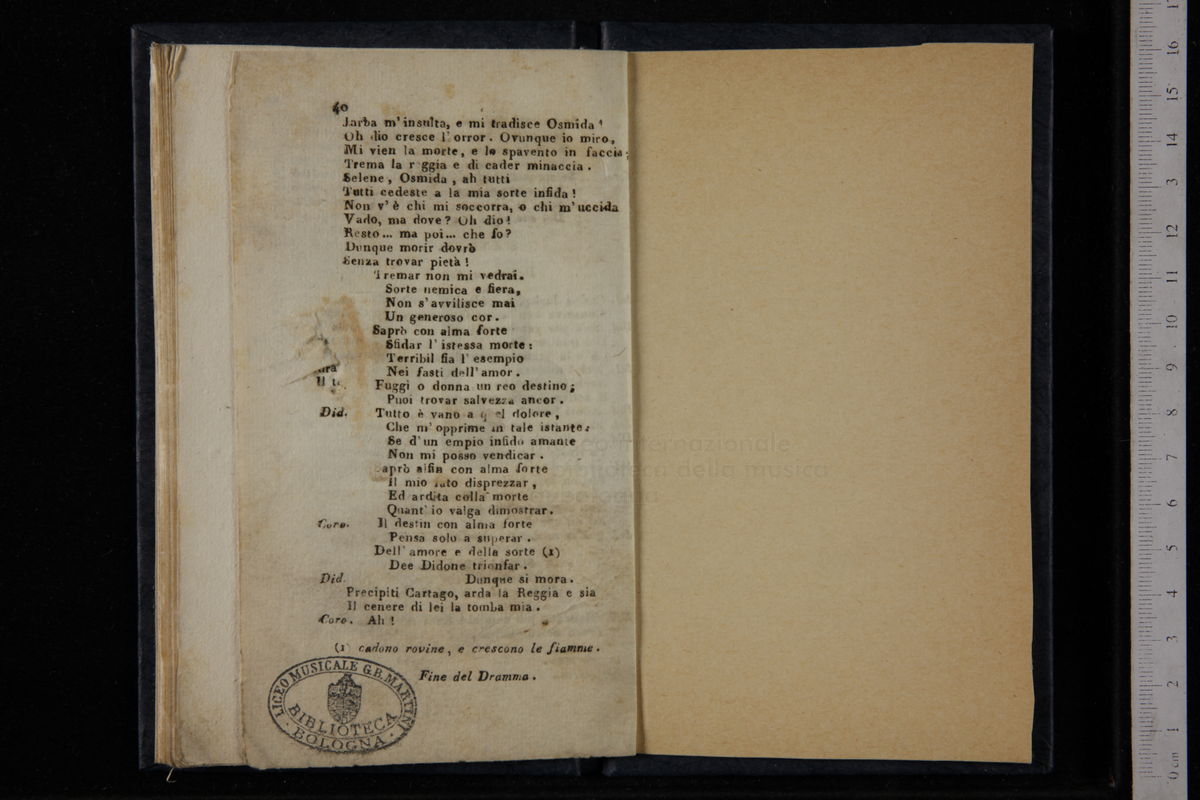 40
Jarba m'insulta, e mi tradisce Osmida!
Oh dio cresce l'orror. Ovunque io miro,
Mi vien la morte, e lo spavento in faccia;
Trema la reggia e di cader minaccia.
Selene, Osmida, ah tutti
Tutti cedeste a la mia sorte infida!
Non v'è chi mi soccorra, o chi m'uccida
Vado, ma dove? Oh dio!
Resto... ma poi... che fo?
Dunque morir dovrò
Senza trovar pietà!
Tremar non mi vedrai.
Sorte nemica e fiera,
Non s'avvilisce mai
Un generoso cor.
Saprò con alma forte
Sfidar l'istessa morte:
Terribil fia l'esempio
Nei fasti dell'amor.
Il Fuggi o donna un reo destino;
Puoi trovar salvezza ancor.
Did. Tutto è vano a quel dolore,
Che m'opprime in tale istante:
Se d'un empio infido amante
Non mi posso vendicar.
Saprò alfin con alma forte
Il mio fato disprezzar,
Ed ardita colla morte
Quant'io valga dimostrar.
Coro. Il destin con alma forte
Pensa solo a superar.
Dell'amore e della sorte (1)
Dee Didone trionfar.
Did. Dunque si mora.
Precipiti Cartago, arda la Reggia e sia
Il cenere di lei la tomba mia.
Coro. Ah!
(1) cadono rovine, e crescono le fiamme.
Fine del Dramma.
LICEO MUSICALE G.B. MARTINI
BIBLIOTECA
BOLOGNA
internazionale
biblioteca della musica